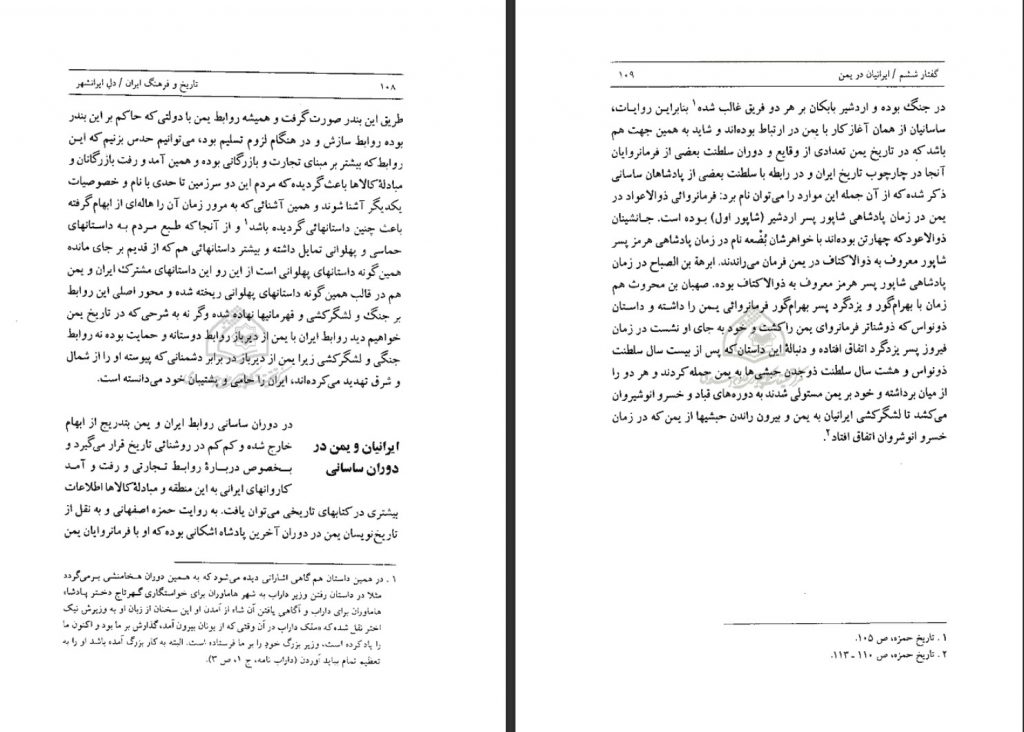 ۱۰۸ تاریخ و فرهنگ ایران / دل ایرانشهر
طریق این بندر صورت گرفت و همیشه روابط یمن با دولتی که حاکم بر این بندر
بوده روابط سازش و در هنگام لزوم تسلیم بود، می‌توانیم حدس بزنیم که این
روابط که بیشتر بر مبنای تجارت و بازرگانی بوده و همین آمد و رفت بازرگانان و
مبادلهٔ کالاها باعث گردیده که مردم این دو سرزمین تا حدی با نام و خصوصیات
یکدیگر آشنا شوند و همین آشنائی که به مرور زمان آن را هاله‌ای از ابهام گرفته
باعث چنین داستانهائی گردیده باشد۱ و از آنجا که طبع مردم به داستانهای
حماسی و پهلوانی تمایل داشته و بیشتر داستانهائی هم که از قدیم بر جای مانده
همین گونه داستانهای پهلوانی است از این رو این داستانهای مشترک ایران و یمن
هم در قالب همین گونه داستانهای پهلوانی ریخته شده و محور اصلی این روابط
بر جنگ و لشگرکشی و قهرمانیها نهاده شده وگر نه به شرحی که در تاریخ یمن
خواهیم دید روابط ایران با یمن از دیرباز روابط دوستانه و حمایت بوده نه روابط
جنگی و لشگرکشی زیرا یمن از دیرباز در برابر دشمنانی که پیوسته او را از شمال
و شرق تهدید می‌کرده‌اند، ایران را حامی و پشتیبان خود می‌دانسته است.
ایرانیان و یمن در
دوران ساسانی
در دوران ساسانی روابط ایران و یمن بتدریج از ابهام
خارج شده و کم کم در روشنائی تاریخ قرار می‌گیرد و
بخصوص دربارهٔ روابط تجارتی و رفت و آمد
کاروانهای ایرانی به این منطقه و مبادلهٔ کالاها اطلاعات
بیشتری در کتابهای تاریخی می‌توان یافت. به روایت حمزه اصفهانی و به نقل از
تاریخ‌نویسان یمن در دوران آخرین پادشاه اشکانی بوده که او با فرمانروایان یمن
۱ . در همین داستان هم گاهی اشاراتی دیده می‌شود که به همین دوران هخامنشی برمی‌گردد
مثلا در داستان رفتن وزیر داراب به شهر هاماوران برای خواستگاری گهرتاج دختر پادشاه
هاماوران برای داراب و آگاهی یافتن آن شاه از آمدن او این سخنان از زبان او به وزیرش نیک
اختر نقل شده که «ملک داراب در آن وقتی که از یونان بیرون آمد، گذارش بر ما بود و اکنون ما
را یاد کرده است، وزیر بزرگ خود را بر ما فرستاده است. البته به کار بزرگ آمده باشد او را به
تعظیم تمام بباید آوردن (داراب نامه، ج ۱، ص ۳).
گفتار ششم / ایرانیان در یمن ۱۰۹
در جنگ بوده و اردشیر بابکان بر هر دو فریق غالب شده۱ بنابراین روایات،
ساسانیان از همان آغاز کار با یمن در ارتباط بوده‌اند و شاید به همین جهت هم
باشد که در تاریخ یمن تعدادی از وقایع و دوران سلطنت بعضی از فرمانروایان
آنجا در چارچوب تاریخ ایران و در رابطه با سلطنت بعضی از پادشاهان ساسانی
ذکر شده که از آن جمله این موارد را می‌توان نام برد: فرمانروائی ذوالاعواد در
یمن در زمان پادشاهی شاپور پسر اردشیر (شاپور اول) بوده است. جانشینان
ذوالاعود که چهار تن بوده‌اند با خواهرشان بُضْعه نام در زمان پادشاهی هرمز پسر
شاپور معروف به ذوالاکتاف در یمن فرمان می‌راندند. ابرهة بن الصباح در زمان
پادشاهی شاپور پسر هرمز معروف به ذوالاکتاف بوده. صهبان بن محروث هم
زمان با بهرام‌گور و یزدگرد پسر بهرام‌گور فرمانروائی یمن را داشته و داستان
ذونواس که ذوشناتر فرمانروای یمن را کشت و خود به جای او نشست در زمان
فیروز پسر یزدگرد اتفاق افتاده و دنبالهٔ این داستان که پس از بیست سال سلطنت
ذونواس و هشت سال سلطنت ذوجدن حبشی‌ها به یمن حمله کردند و هر دو را
از میان برداشته و خود بر یمن مستولی شدند به دوره‌های قباد و خسرو انوشیروان
می‌کشد تا لشگرکشی ایرانیان به یمن و بیرون راندن حبشیها از یمن که در زمان
خسرو انوشروان اتفاق افتاد۲.
۱ . تاریخ حمزه، ص ۱۰۵.
۲ . تاریخ حمزه، ص ۱۱۰ ـ ۱۱۳.